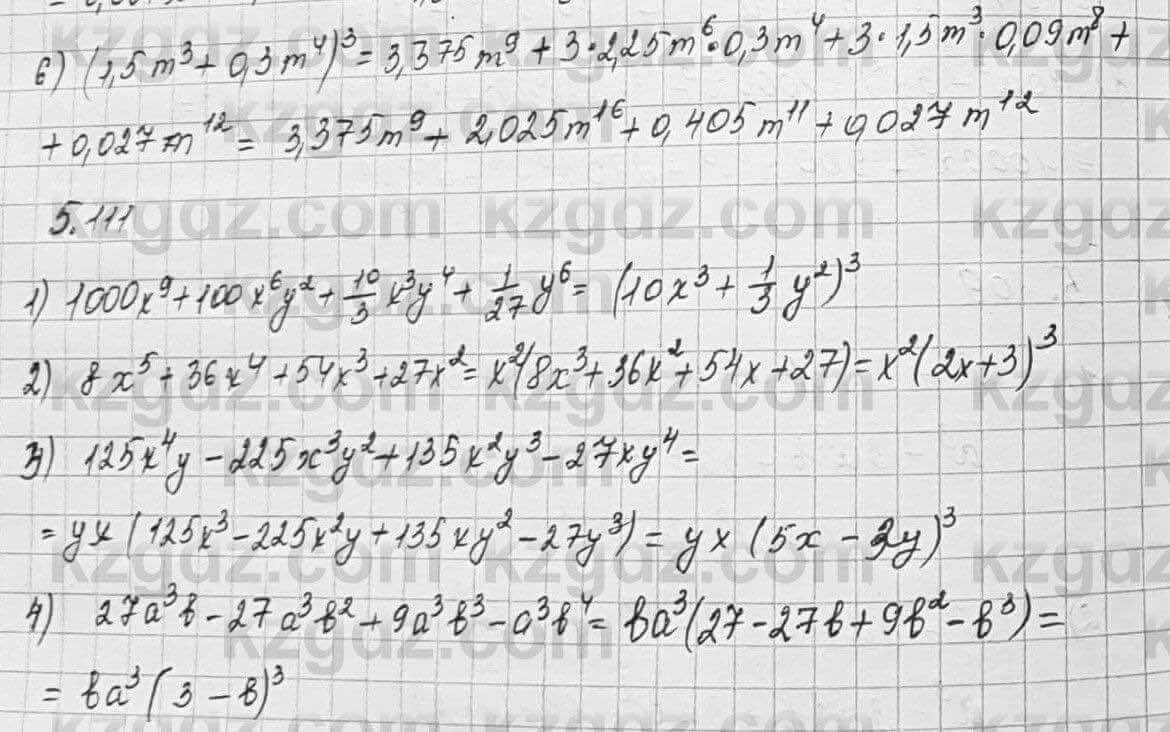 6) (1,5m³ + 0,3m⁴)³ = 3,375m⁹ + 3·2,25m⁶·0,3m⁴ + 3·1,5m³·0,09m⁸ +
+ 0,027m¹² = 3,375m⁹ + 2,025m¹⁶ + 0,405m¹¹ + 0,027m¹²
5.111
1) 1000x⁹ + 100x⁶y² + 10/3 x³y⁴ + 1/27 y⁶ = (10x³ + 1/3 y²)³
2) 8x⁵ + 36x⁴ + 54x³ + 27x² = x²(8x³ + 36x² + 54x + 27) = x²(2x+3)³
3) 125x⁴y - 225x³y² + 135x²y³ - 27xy⁴ =
= yx (125x³ - 225x²y + 135xy² - 27y³) = yx (5x - 3y)³
4) 27a³b - 27a³b² + 9a³b³ - a³b⁴ = ba³(27 - 27b + 9b² - b³) =
= ba³ (3 - b)³
kzgdz.com